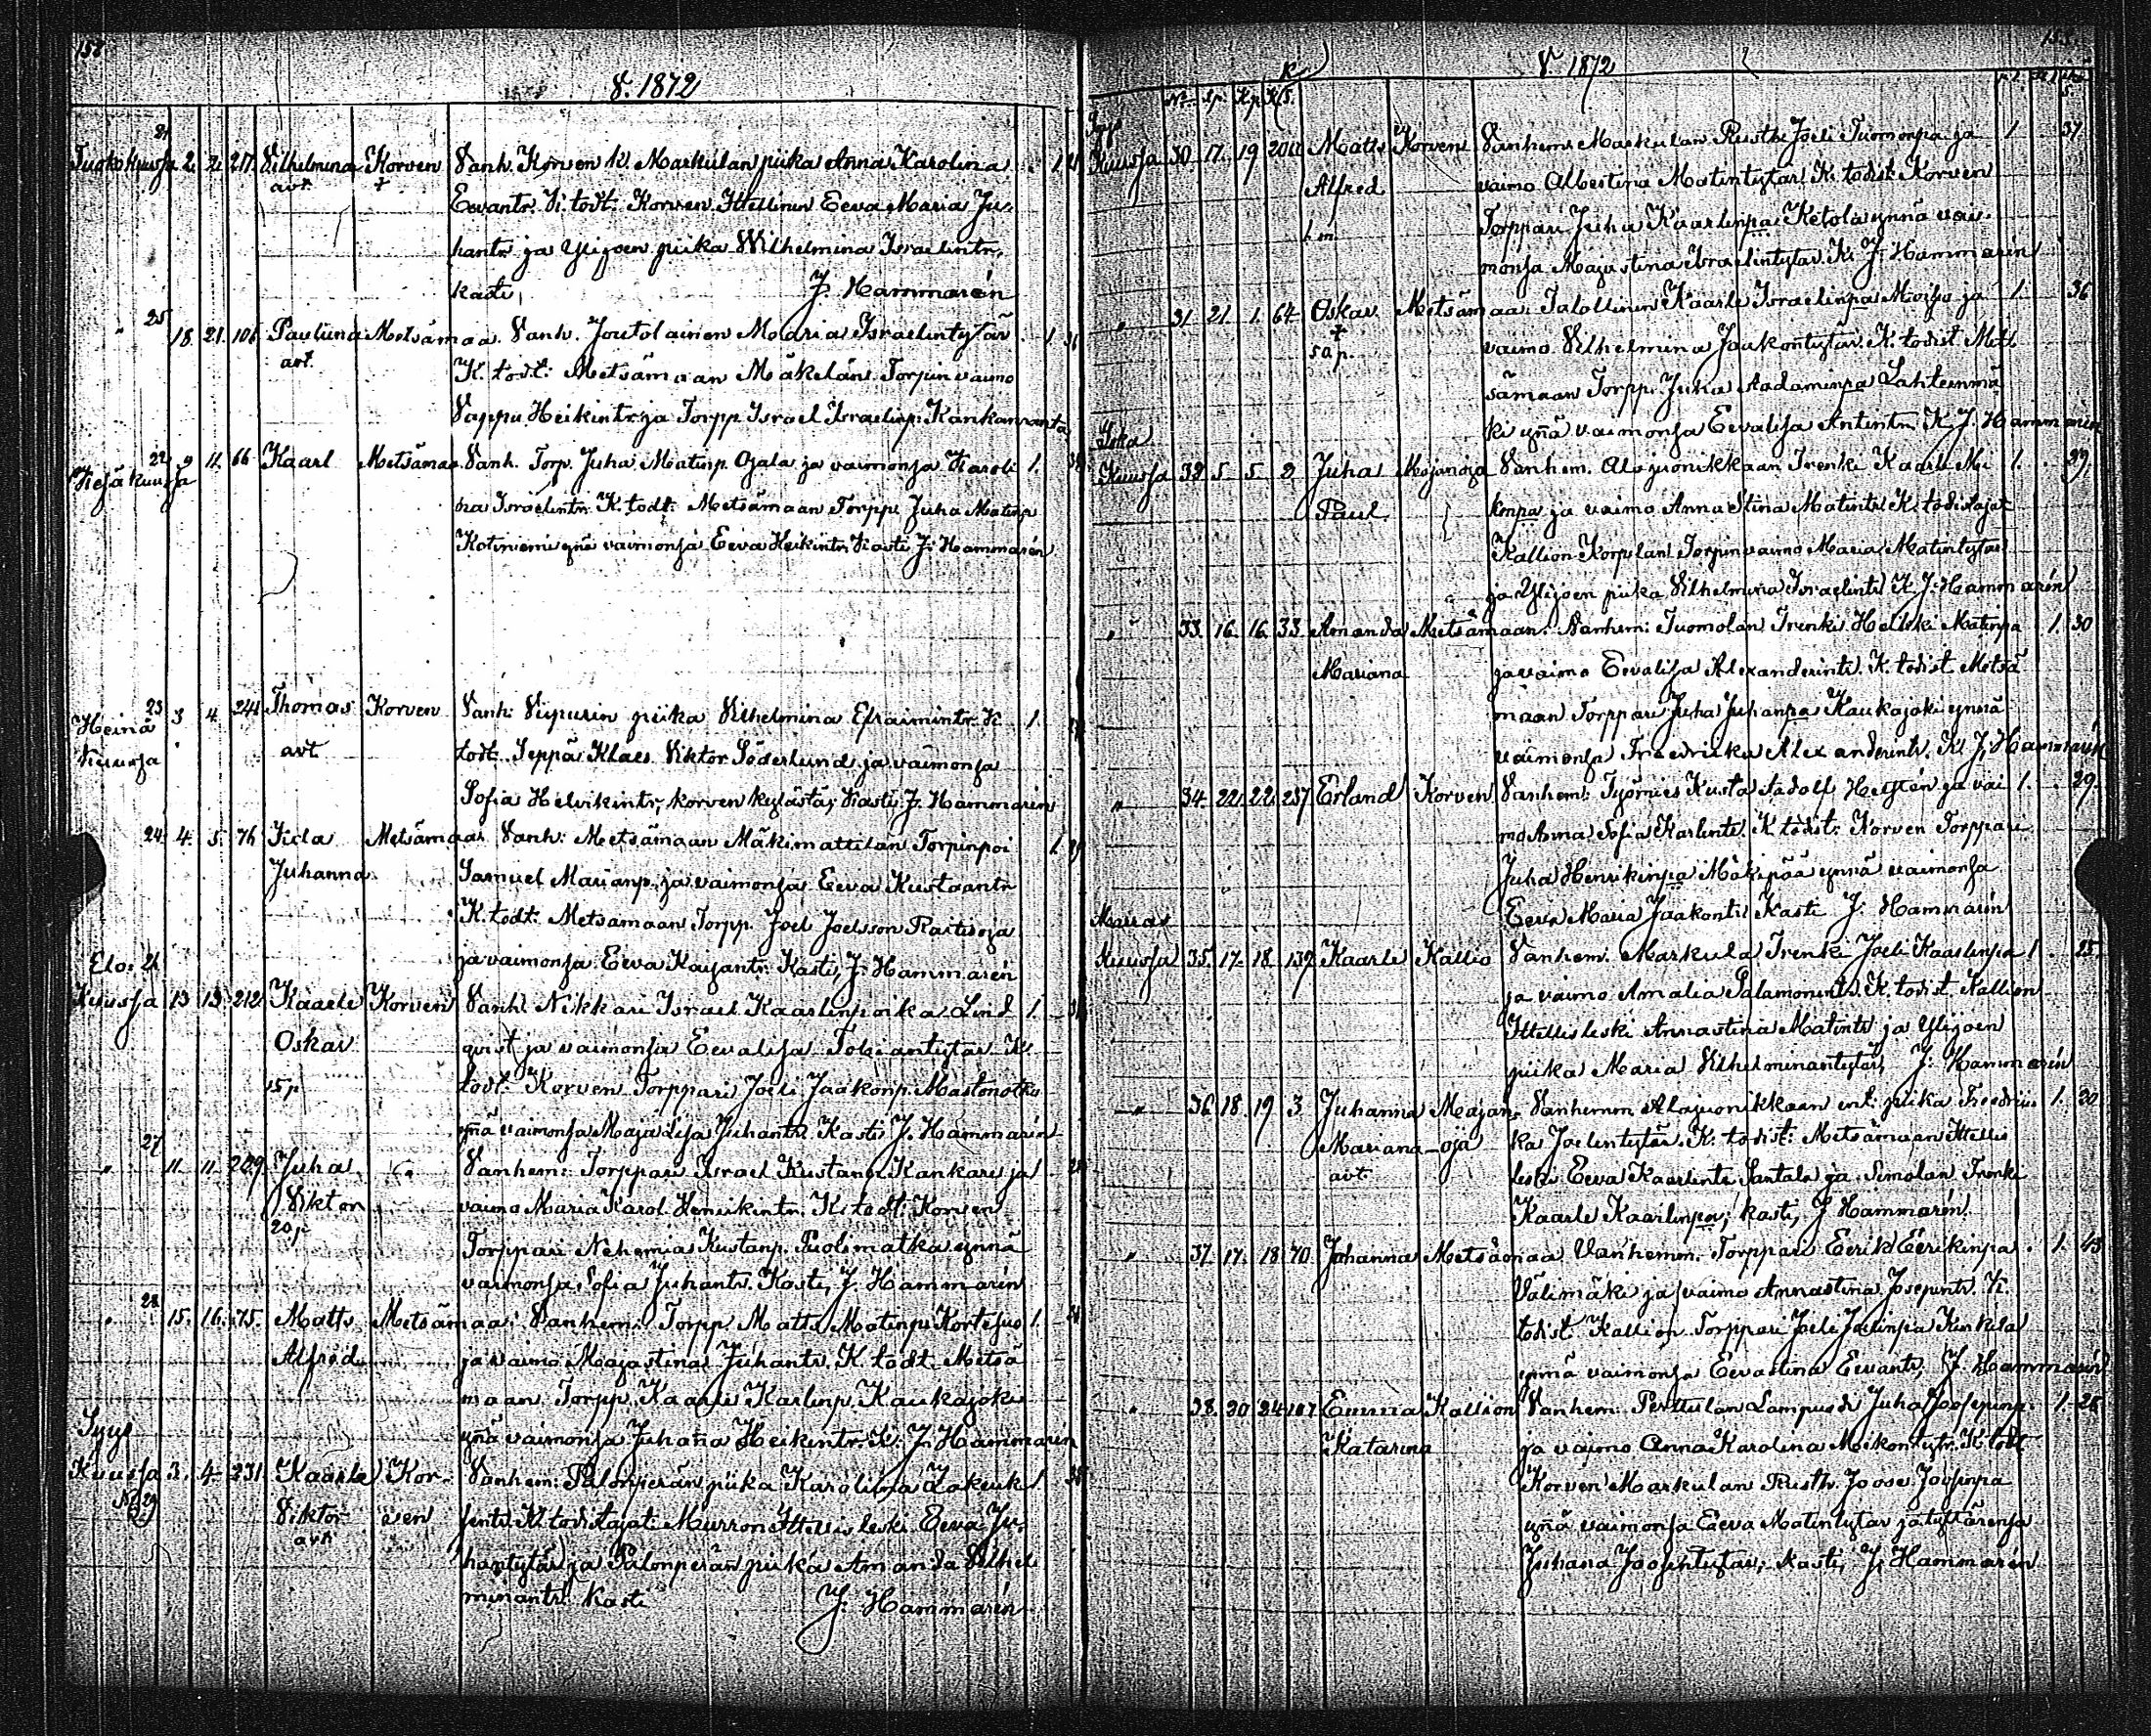 158
V. 1872
21
Tuokokuusa 2. 2. 217. Vilhelmina Korven Vanh. Korven k. Markulan piika Anna Karolina 1. 21
avt. + Eevantr. K. todt. Korven Ittellinen Eeva Maria Ju-
hantr. ja Ylijoen piika Wilhelmina Israelintr.
kasti, J. Hammarén
25
" 18. 21. 106 Pauliina Metsämaa. Vanh. Joutolainen Madria Israelintytär 1. 36
avt. K. todt: Metsämaan Mäkelän Torpin vaimo
Vappu Heikintr. ja Torpp Israel Israelinp. Kankaanranta
22 9 11. 66 Kaarl Metsämaa. Vanh. Torp. Juha Matinp. Ojala ja vaimonsa Karoli 1.
Kesäkuusa
na Israelintr. K. todt. Metsämaan Torpp. Juha Matinp
Kotiniemi ynä vaimonsa Eeva Heikintr. Kasti J. Hammarén
23 3 4. 244 Thomas Korven Vanh: Viipurin piika Vilhelmina Efraimintr. K. 1.
Heinä
Kuusa
avt todt. Seppä Klaes Viktor Söderlund ja vaimonsa
Sofia Helvikintr., korven kylästä; Kasti J. Hammarén
24. 4. 5. 76 Iida Metsämaa Vanh: Metsämaan Mäkimattilan Torpinpoi 1.
Juhanna Samuel Marianp. ja vaimonsa Eeva Kustaantr
K. todt: Metsämaan Torpp. Joel Joelsson Rastioja
ja vaimonsa Eeva Kaijantr. Kasti, J. Hammarén
Elo. 26
Kuusa 13 13. 212 Kaarle Korven Vanh. Nikkari Israel Kaarlenpoika Lind 1.
Oskar qvist ja vaimonsa Eevalisa Tobiantytär K.
15 p todt. Korven Torppari Joeli Jaakonp. Mastonotko
ynä vaimonsa Maja Lisa Juhantr. Kasti J. Hammarén
27
" 11. 11. 209 Juha " Vanhem: Torppari Israel Kustanp. Kankari ja 1.
Viktor vaimo Maria Karol. Henrikintr. K. todt: Korven
20 p Torppari Nehemia Kustanp. Puolimatka ynnä
vaimonsa Sofia Juhantr. Kasti, J. Hammarén
28
" 15. 16. 75. Matts Metsämaa Vanhem: Torpp Matts Matinp. Kortesuo 1.
Alfred ja vaimo Majastina Juhantr. K. todt. Metsä
maan Torpp. Kaarle Karlinp. Kaukajoki
ynä vaimonsa Juhana Heikintr. K. J. Hammarén
Syys
Kuusa 3. 4. 231 Kaarle Kor- Vanhem: Palonperän piika Karoliina Zakeuk 1.
No 29
Viktor ven sentr. K. todistajat: Murron Ittellis leski Eeva Ju-
avt hantytär ja Palonperän piika Amanda Vilhel
minantr. Kasti J. Hammarén
V 1872
No Sp. Kp. K. S.
Syys
Kuusa 30. 17. 19 204 Matts Korven Vanhem: Markulan Rusth. Joeli Tuomonpa ja 1. 37
Alfred vaimo Albertina Matintytär K. todist: Korven
Torppari Juha Kaarlenpa Ketola ynnä vai-
monsa Majastina Israelintytär K. J. Hammarén
" 31 21 1. 64 Oskar Metsämaa Talollinen Kaarle Israelinpa Moisio ja 1. 36
+ vaimo Vilhelmina Jaakontytär. K. todist Met-
5 a p. sämaan Torpp. Juha Aadaminpa Lähteenmä
ki ynä vaimonsa Eevalisa Antintr. K. J. Hammarén
Loka
Kuusa 32 5. 5. 2 Juha Majanoja Vanhem. Alajuonikkaan Trenki Kaarle Mi 1. 29
Paul konpa ja vaimo Anna Stina Matintr. K. todistajat
Kallion Korpelan Torpin vaimo Maria Matintytär
ja Ylijoen piika Vilhelmina Israelintr. K. J. Hammarén
" 33. 16. 16. 33 Amanda Metsämaan. Vanhem: Tuomolan Trenki Heikki Matinpa 1. 30
Mariana ja vaimo Eevalisa Alexanderintr. K. todist Metsä
maan Torppari Juha Juhanpa Kaukajoki ynnä
vaimonsa Freedrika Alexanderintr. K. J. Hammarén
" 34. 22. 22. 237 Erland Korven Vanhem: Työmies Kusta Aadolf Hellstén ja vai 1. 29.
mo Anna Sofia Karlintr. K. todist: Korven Torppari
Juha Henrikinpa Mäkipää ynnä vaimonsa
Eeva Maria Jaakontr. Kasti J. Hammarén
Marras
Kuusa 35. 17. 18. 137 Kaarle Kallio Vanhem: Markula Trenki Joeli Kaarlenpa 1. 25.
ja vaimo Amalia Salamonintr. K. todist. Kallion
Ittellis leski Annastina Matintr. ja Ylijoen
piika Maria Vilhelminantytär, J. Hammarén
" 36. 18. 19 3. Juhanna Majan- Vanhemm Alajuonikkaan ent. piika Freedrii 1. 30
Mariana oja ka Joelintytär. K. todist: Metsämaan Ittellis
avt. leski Eeva Kaarlentr. Santala ja Simolan Trenki
Kaarle Kaarlinpa; kasti, J Hammarén
" 37. 17. 18 70. Johanna Metsämaa Vanhemm. Torppari Eerik Eerikinpa 1. 43
Välimäki ja vaimo Annastina Josepintr. K.
todist. Kallion Torppari Joeli Joelinpa Kuskila
ynnä vaimonsa Eevastina Eevantr, J. Hammarén
" 38. 20 24 107 Emma Kallion Vanhem: Perttulan Lampuodi Juha Joosepinp. 1. 28
Katarina ja vaimo Anna Karolina Mikontytr. K. todt
Korven Markulan Rusth. Joose Joosepinpa
ynä vaimonsa Eeva Matintytär ja tyttärensä
Juhana Joosentytär, kasti, J. Hammarén